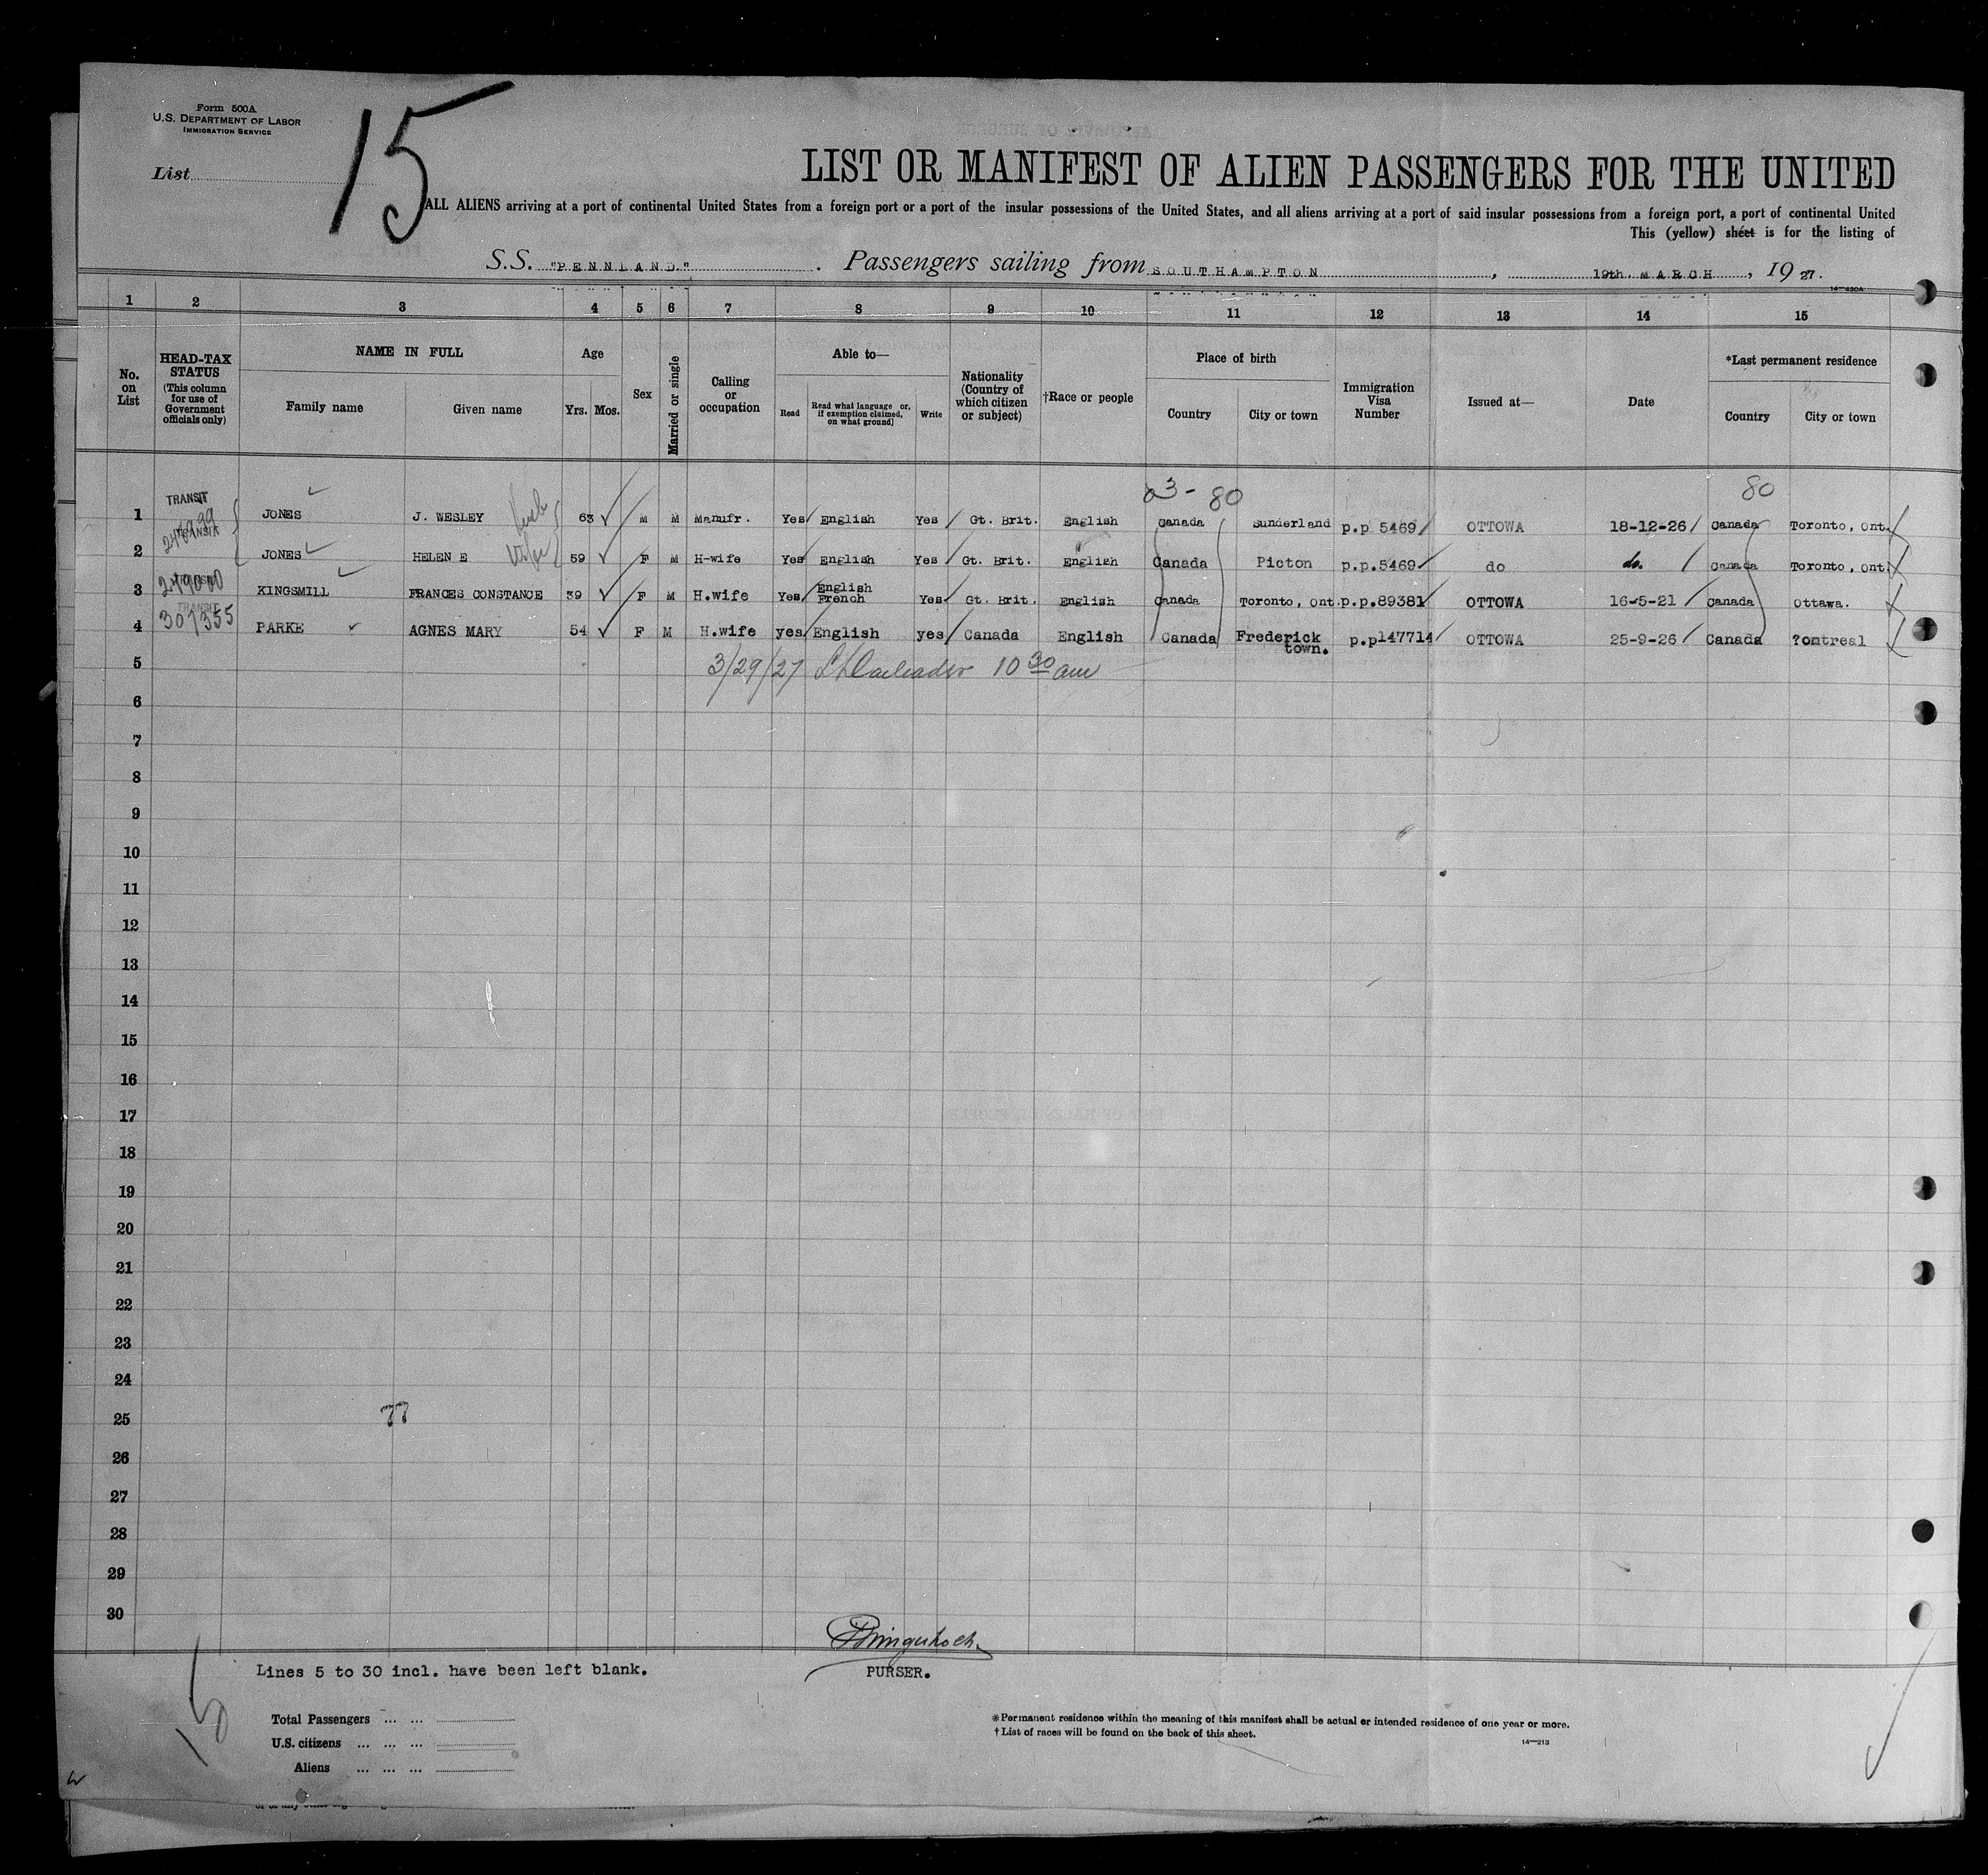 Form 500A
U.S. DEPARTMENT OF LABOR
IMMIGRATION SERVICE
List
15
LIST OR MANIFEST OF ALIEN PASSENGERS FOR THE UNITED
ALL ALIENS arriving at a port of continental United States from a foreign port or a port of the insular possessions of the United States, and all aliens arriving at a port of said insular possessions from a foreign port, a port of continental United
This (yellow) sheet is for the listing of
S.S. "PENNLAND." . Passengers sailing from SOUTHAMPTON , 19th MARCH , 1927.
14—430A
1 2 3 4 5 6 7 8 9 10 11 12 13 14 15
No. on List
HEAD-TAX STATUS (This column for use of Government officials only)
NAME IN FULL
Family name Given name
Age
Yrs. Mos.
Sex
Married or single
Calling or occupation
Able to—
Read
Read what language or, if exemption claimed, on what ground]
Write
Nationality (Country of which citizen or subject)
†Race or people
Place of birth
Country City or town
Immigration Visa Number
Issued at—
Date
*Last permanent residence
Country City or town
80 80
TRANSIT
1 JONES J. WESLEY 63 M M Manufr. Yes English Yes Gt. Brit. English Canada Sunderland p.p 5469 OTTOWA 18-12-26 Canada Toronto, Ont.
2 JONES HELEN E wife 59 F M H-wife Yes English Yes Gt. Brit. English Canada Picton p.p.5469 do do. Canada Toronto, Ont.
249000
3 KINGSMILL FRANCES CONSTANCE 39 F M H.wife Yes English French Yes Gt. Brit. English Canada Toronto, Ont. p.p.89381 OTTOWA 16-5-21 Canada Ottawa.
TRANSIT
307355
4 PARKE AGNES MARY 54 F M H.wife yes English yes Canada English Canada Frederick town. p.p147714 OTTOWA 25-9-26 Canada ?ontreal
5 3/29/27 10 30 am
6
7
8
9
10
11
12
13
14
15
16
17
18
19
20
21
22
23
24
25 77
26
27
28
29
30
Lines 5 to 30 incl. have been left blank.
PURSER.
Total Passengers ... ...
U.S. citizens ... ... ...
Aliens ... ... ...
*Permanent residence within the meaning of this manifest shall be actual or intended residence of one year or more.
†List of races will be found on the back of this sheet.
14—213